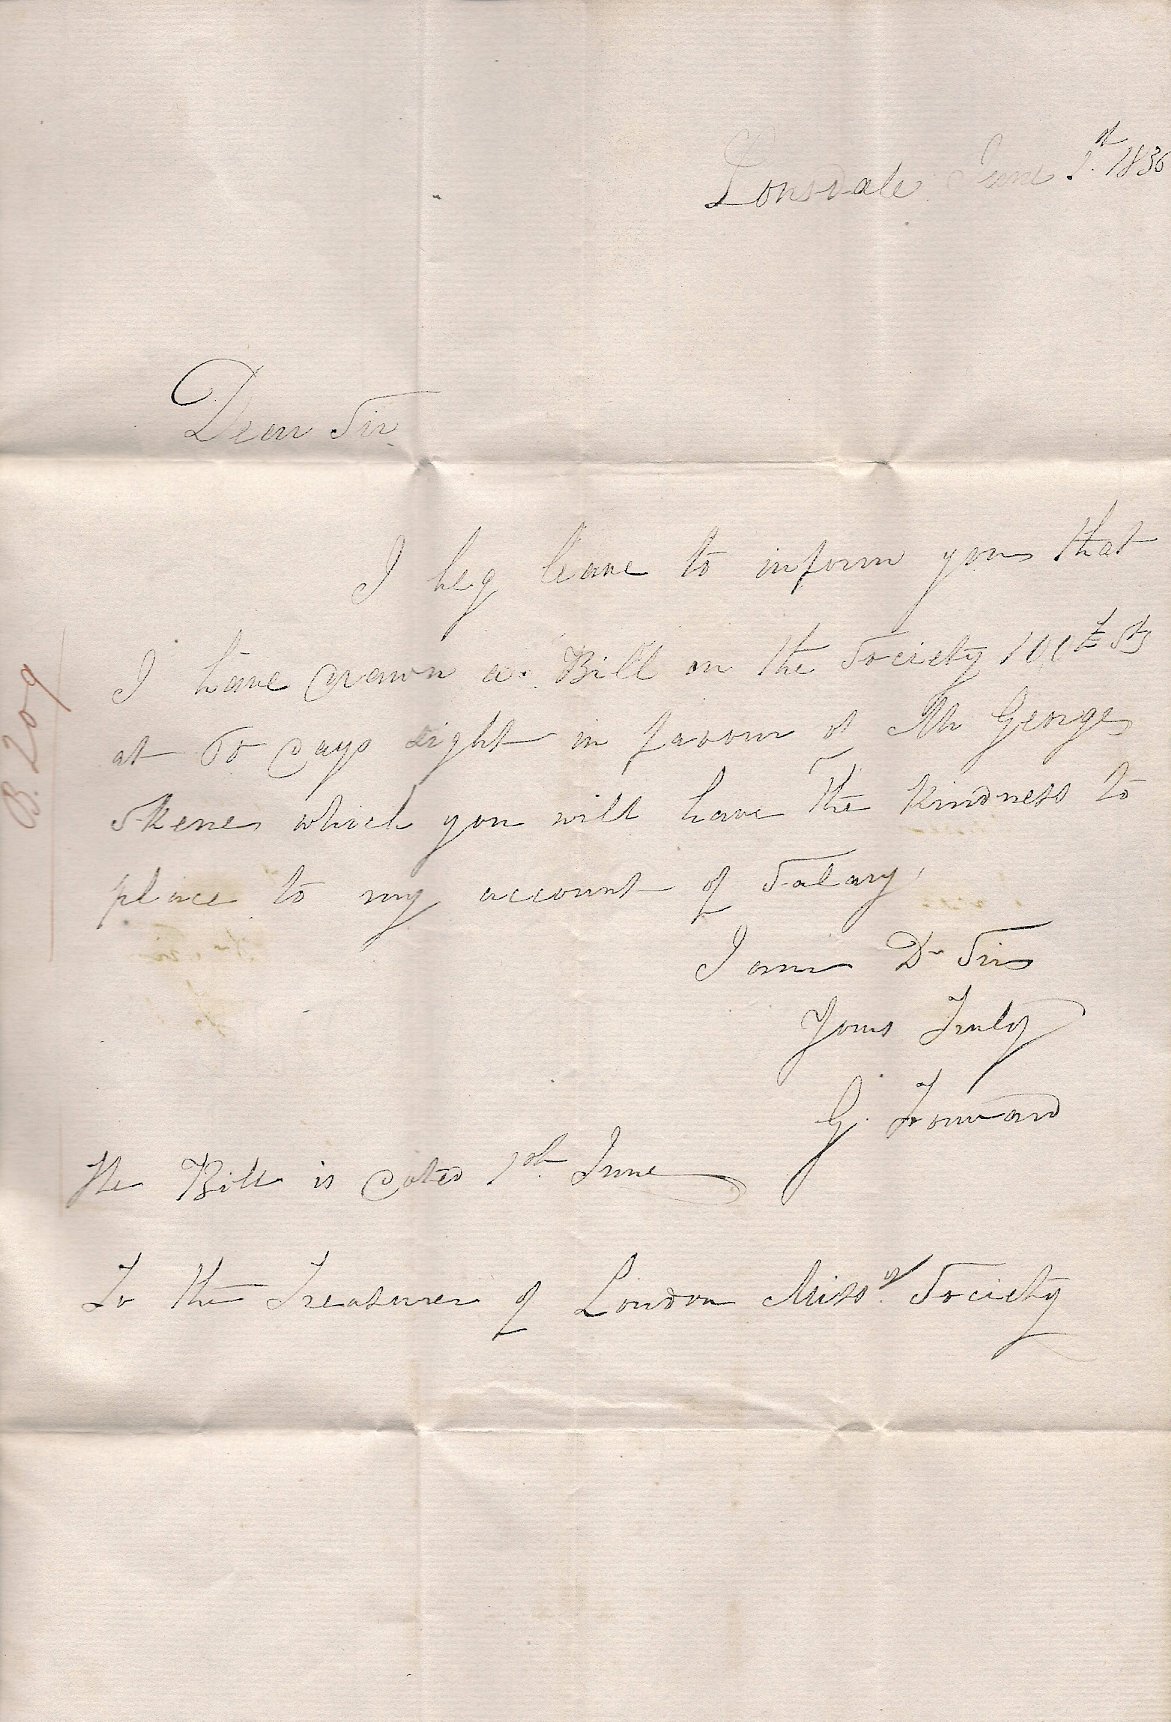 Lonsdale June 1st 1836
Dear Sir
I beg leave to inform you that
I have drawn a Bill on the Society 100£ Stg
at 60 days sight in favour of Mr George
Skene which you will have the kindness to
place to my account of Salary,
I am Dr Sir
Yours Truly
G. Forward
The Bill is dated 1st June
To the Treasurer of London Missy Society
B. 209